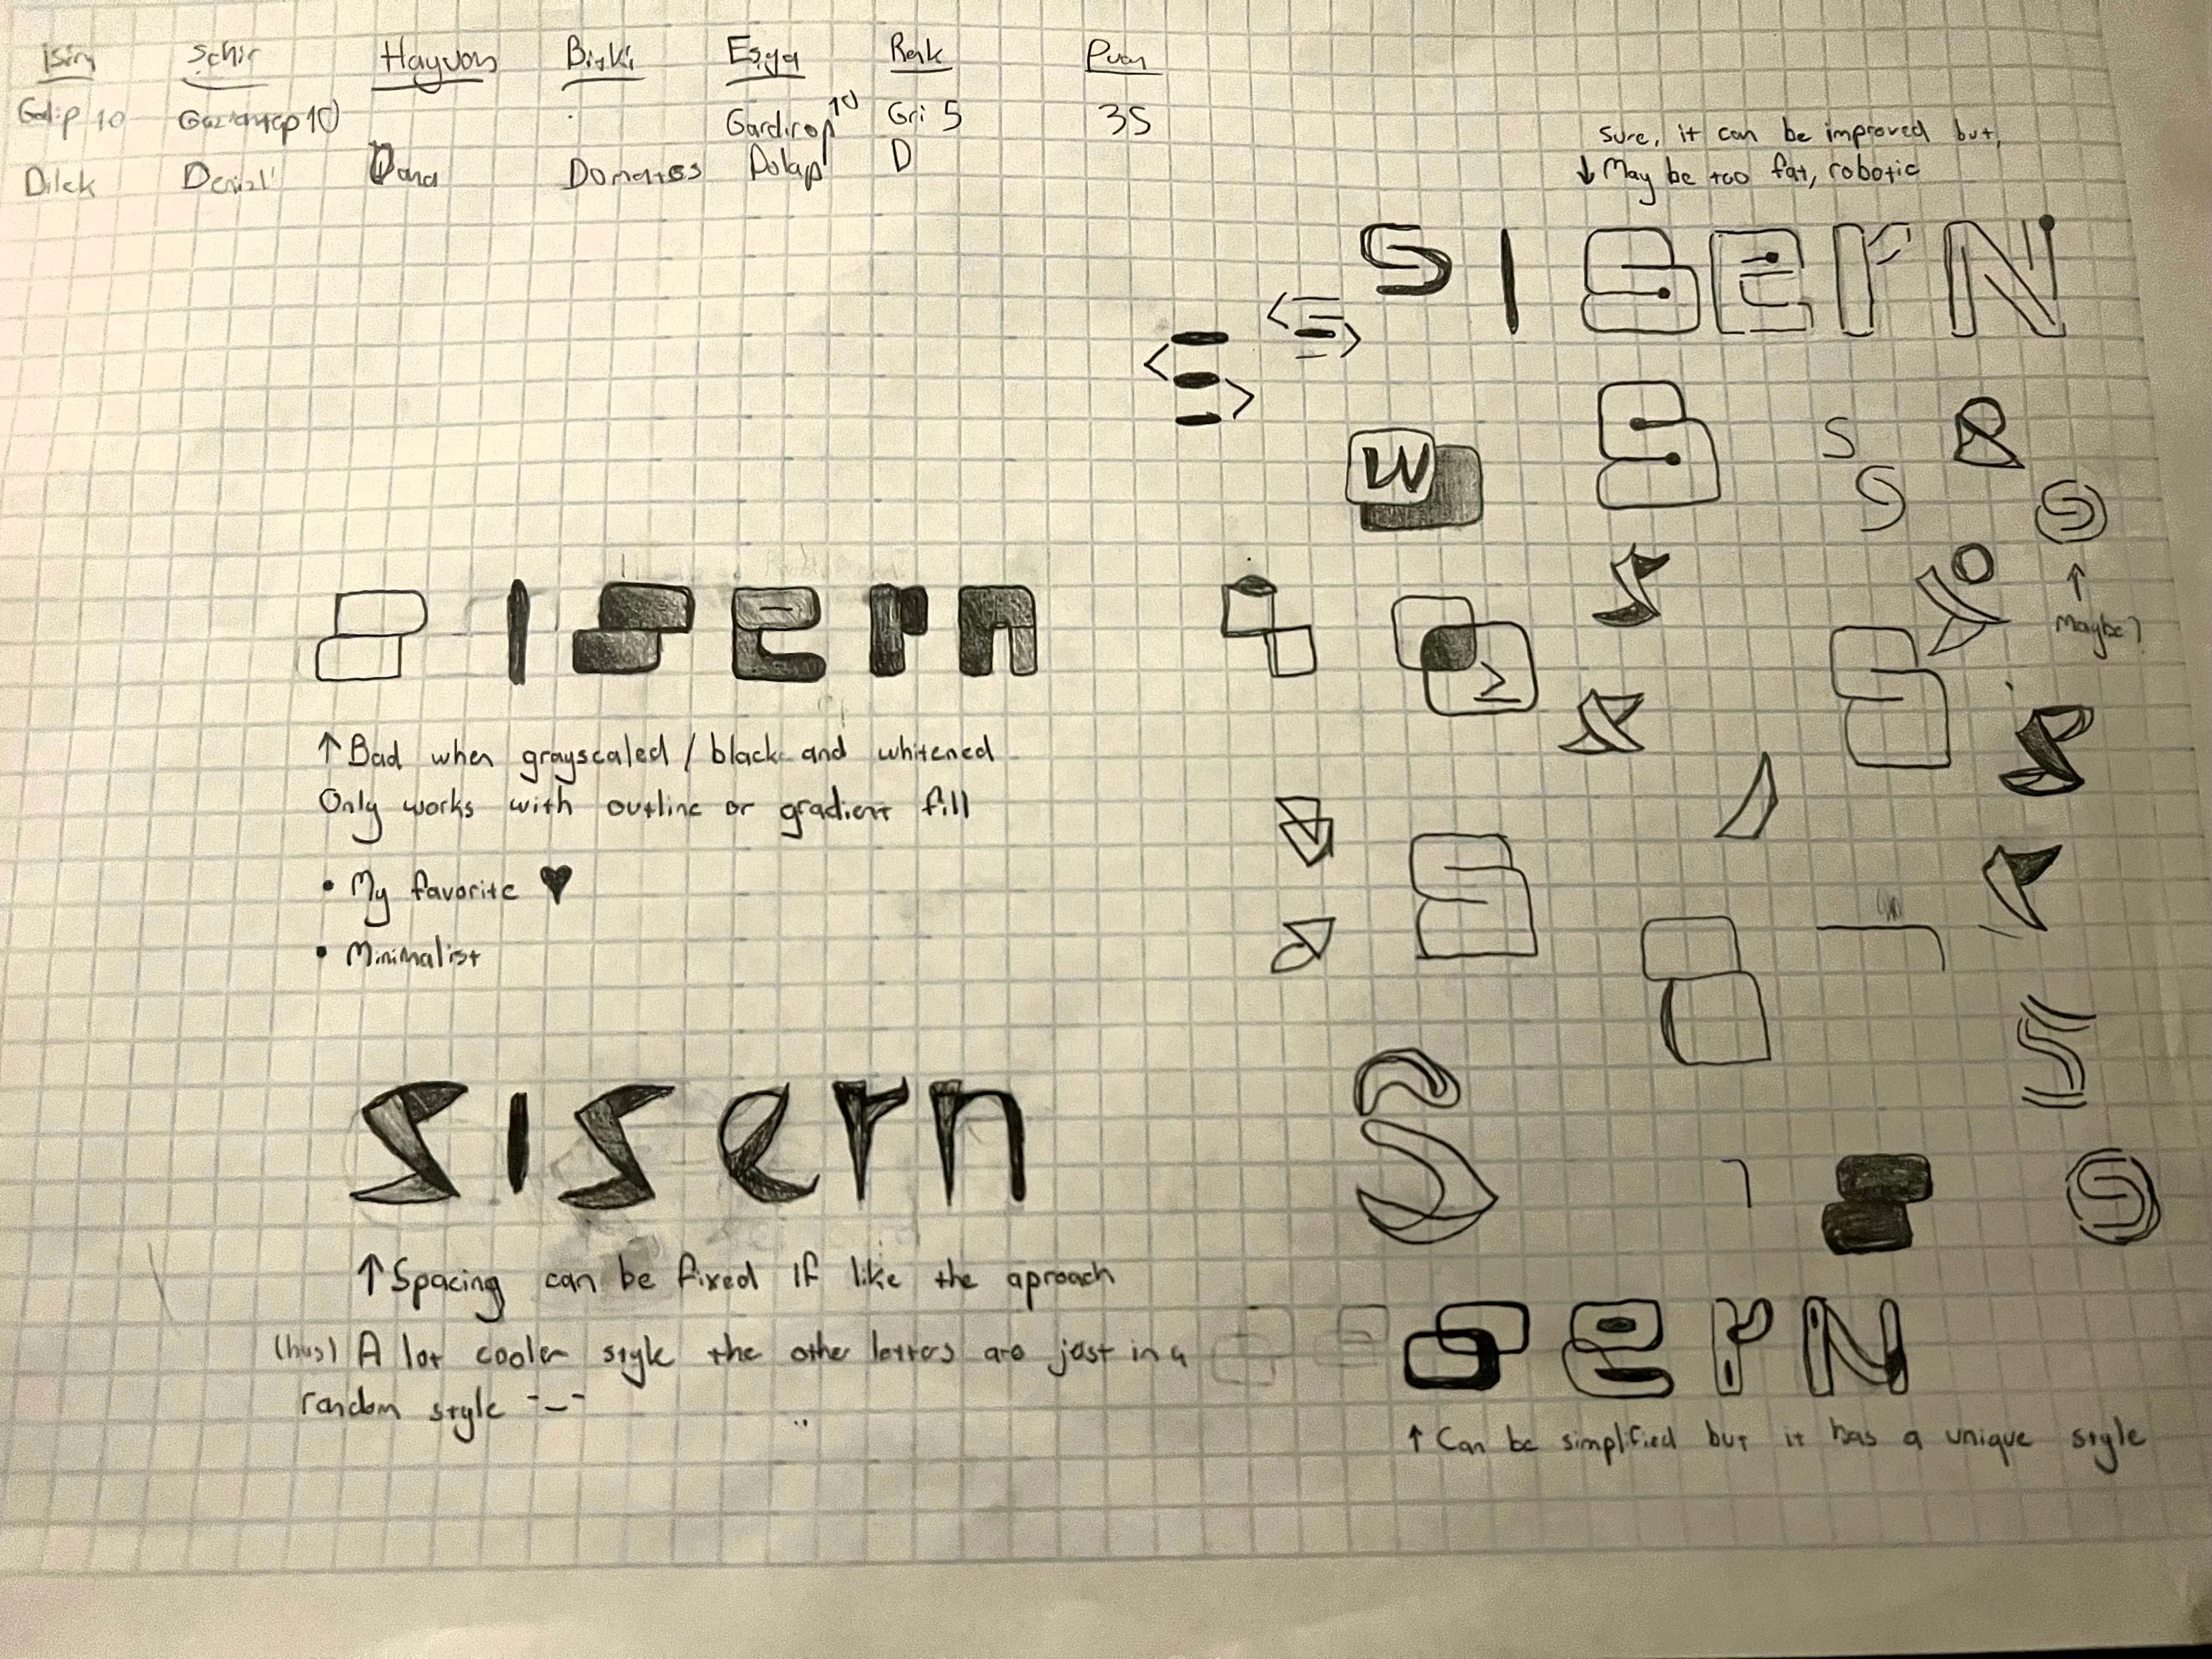 İsim Şehir Hayvan Bitki Eşya Renk Puan
Galip 10 Gaziantep 10 Gardırop 10 Gri 5 35
Dilek Denizli Dana Domates Dolap D
Sure, it can be improved but,
↓ May be too fat, robotic
S | sern
< >
< >
S
W
S
S
S
Maybe?
S | sern
Σ
↑ Bad when grayscaled / black and whitened
Only works with outline or gradient fill
• My favorite ♥
• Minimalist
S
S
S | sern
S
S
↑ Spacing can be fixed if like the aproach
(has) A lot cooler style the other letters are just in a
random style -_-
sern
↑ Can be simplified but it has a unique style